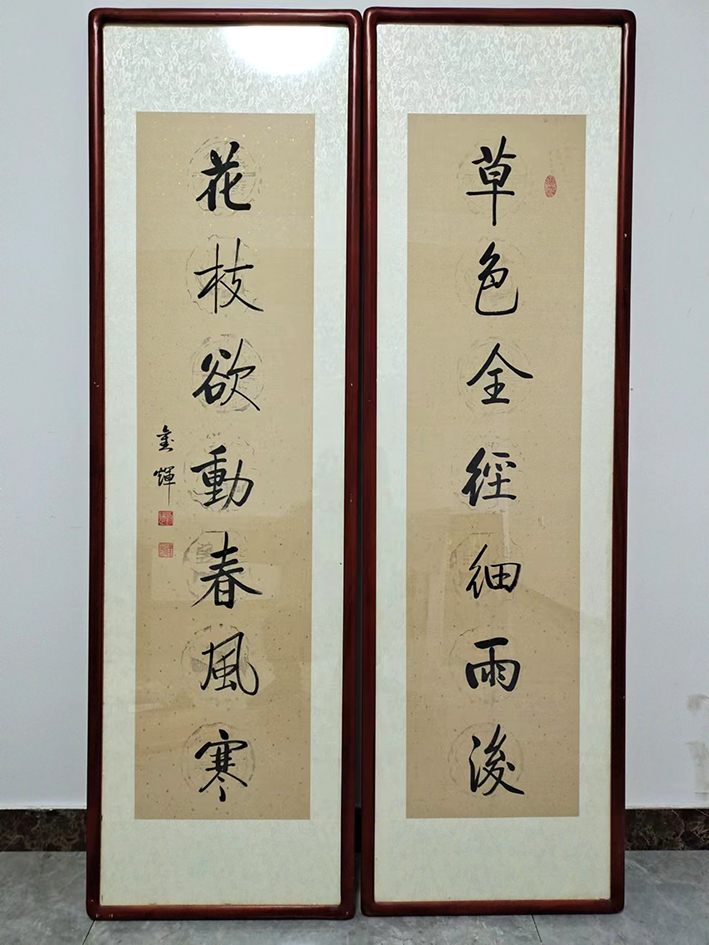 草色全經細雨浚
花枝欲動春風寒
金煇